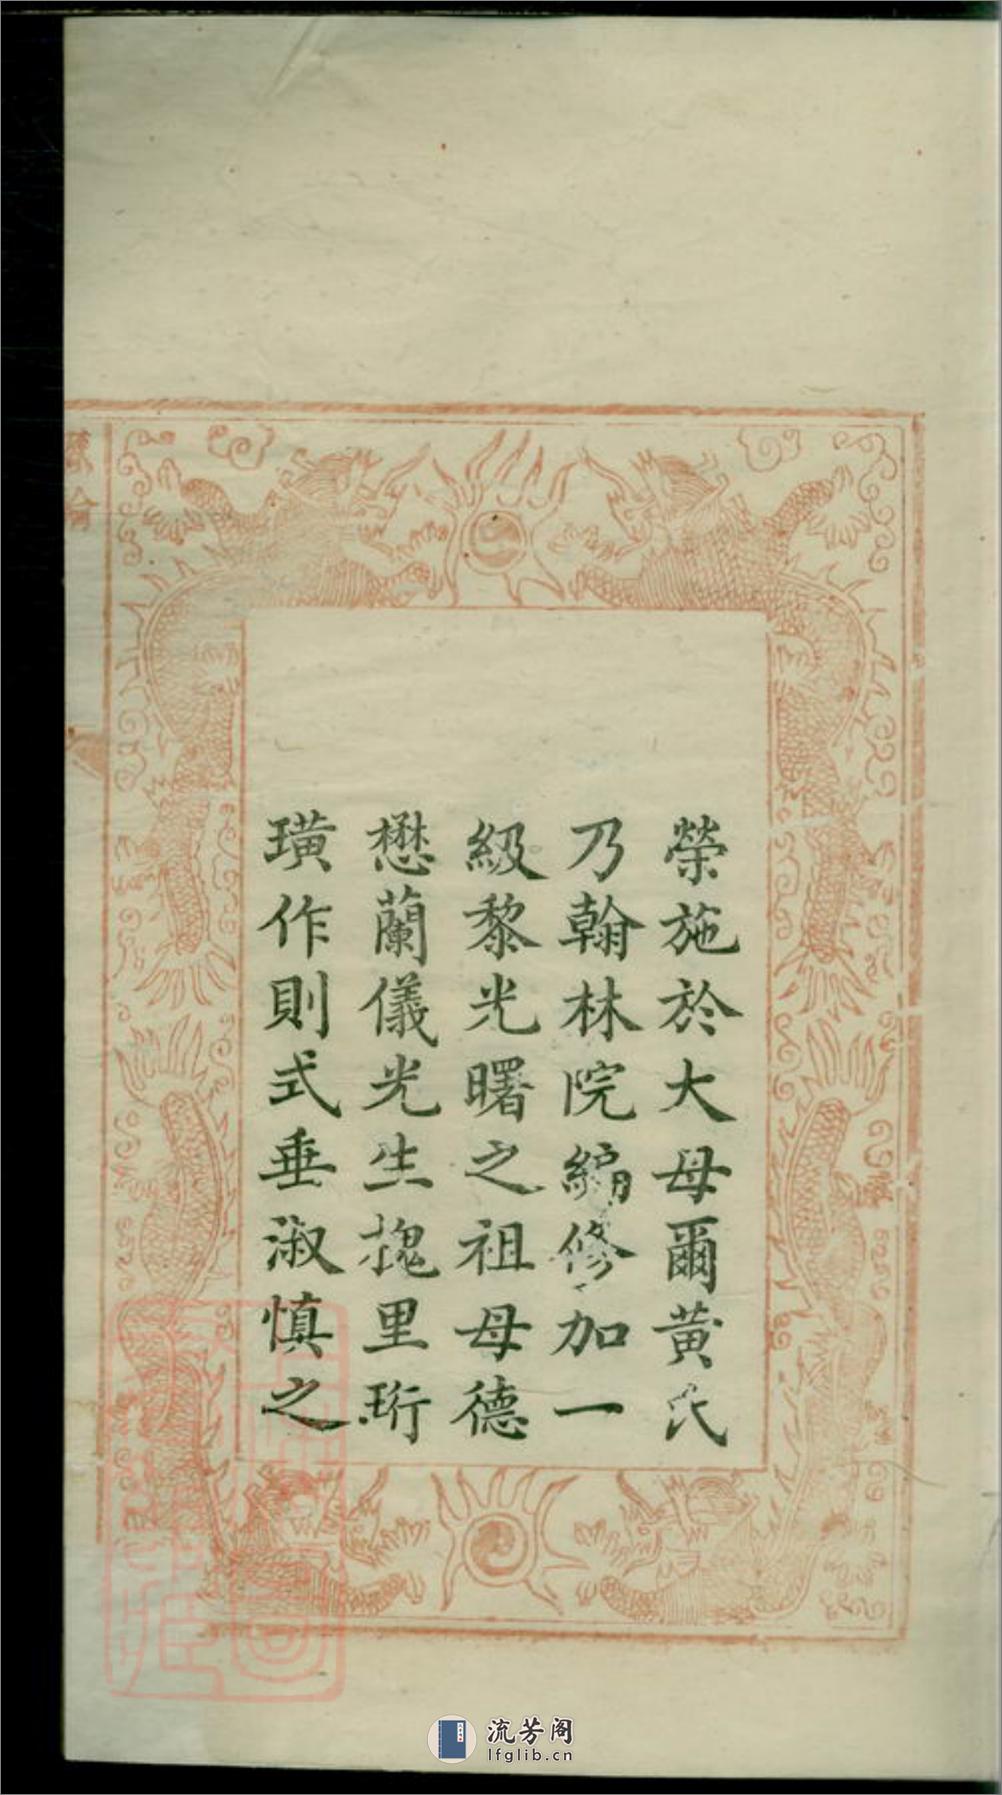 榮施於大母爾黃氏
乃翰林院編修加一
級黎光曙之祖母德
懋蘭儀光生槐里珩
璜作則式垂淑慎之
綸
流芳阁
lfglib.cn